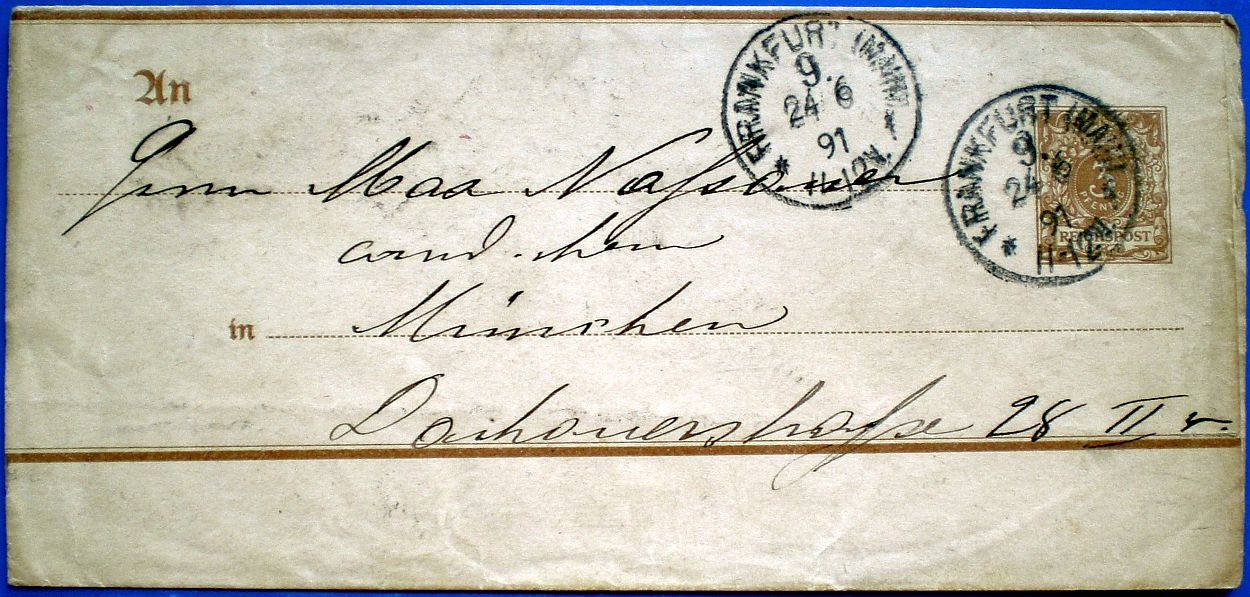 An
Herrn Max Nassauer
cand. chem
in München
Dachauerstraße 28 II r.
FRANKFURT (MAIN)
9.
24 6
91
11-12N.
FRANKFURT (MAIN)
9.
24 6
91
11-12N.
3
REICHSPOST